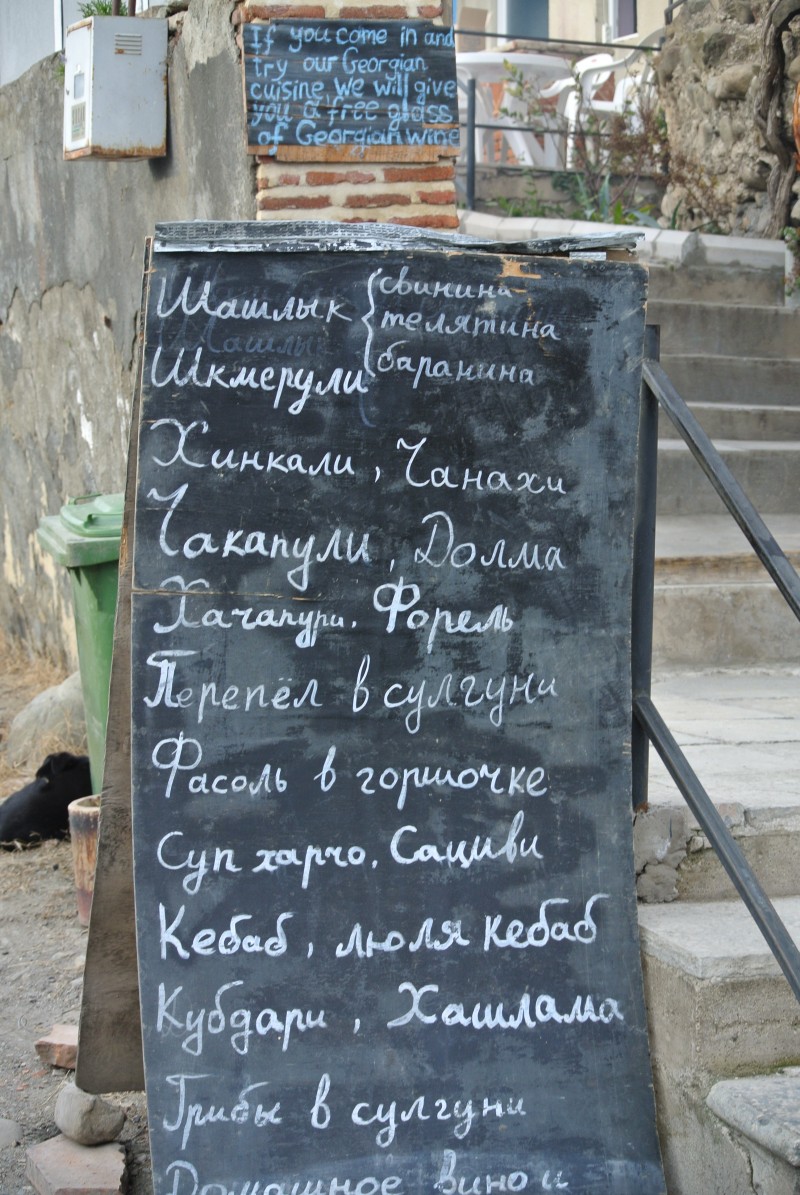 If you come in and
try our Georgian
cuisine we will give
you a free glass
of Georgian wine
Шашлык { свинина
телятина
баранина
Шкмерули
Хинкали, Чанахи
Чакапули, Долма
Хачапури. Форель
Перепёл в сулгуни
Фасоль в горшочке
Суп харчо. Сациви
Кебаб, люля кебаб
Кубдари, Хашлама
Грибы в сулгуни
Домашное вино и